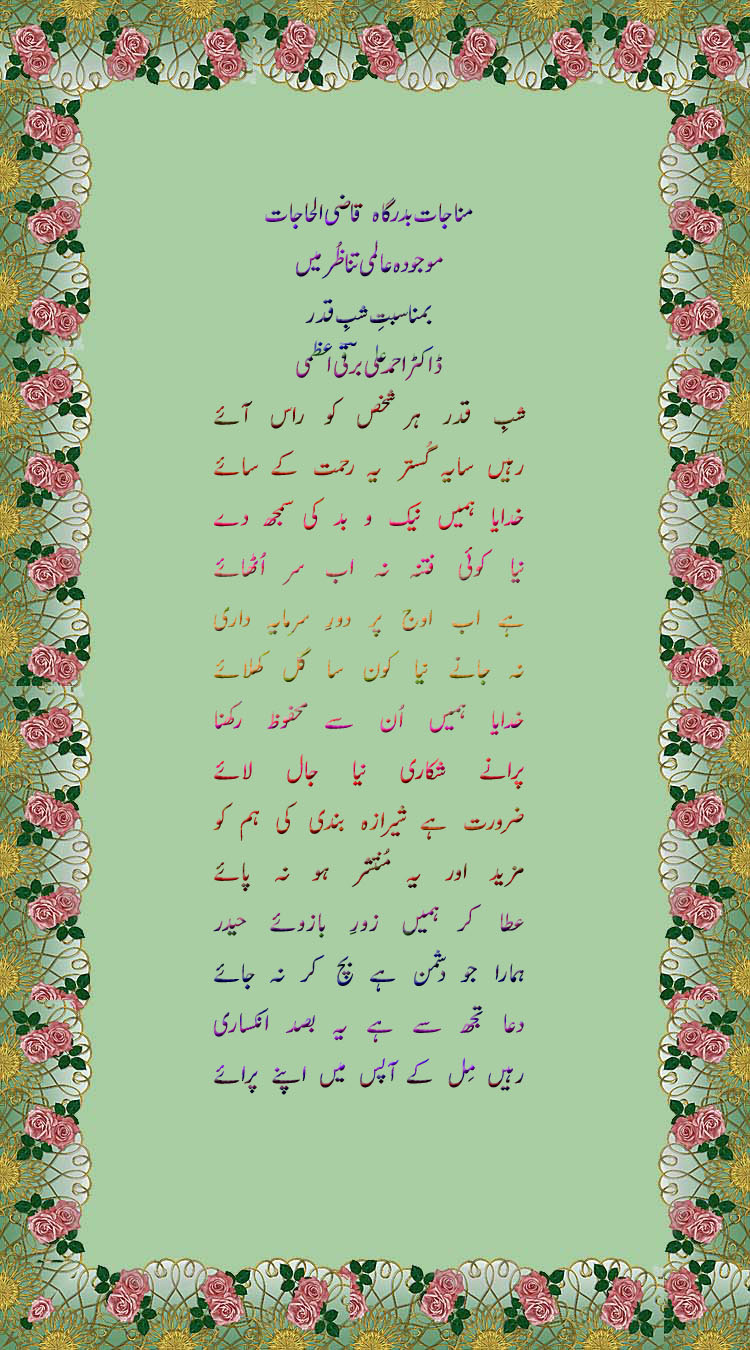 مناجات بدرگاہ قاضی الحاجات
موجودہ عالمی تناظُر میں
بمناسبتِ شبِ قدر
ڈاکٹر احمد علی برقؔی اعظمی
شبِ قدر ہر شخص کو راس آئے
رہیں سایہ گُستر یہ رحمت کے سائے
خدایا ہمیں نیک و بد کی سمجھ دے
نیا کوئی فتنہ نہ اب سر اُٹھائے
ہے اب اوج پر دورِ سرمایہ داری
نہ جانے نیا کون سا گل کھلائے
خدایا ہمیں اُن سے محفوظ رکھنا
پرانے شکاری نیا جال لائے
ضرورت ہے شیرازہ بندی کی ہم کو
مزید اور یہ مُنتشر ہو نہ پائے
عطا کر ہمیں زورِ بازوئے حیدر
ہمارا جو دشمن ہے بچ کر نہ جائے
دعا تجھ سے ہے یہ بصد انکساری
رہیں مِل کے آپس میں اپنے پرائے